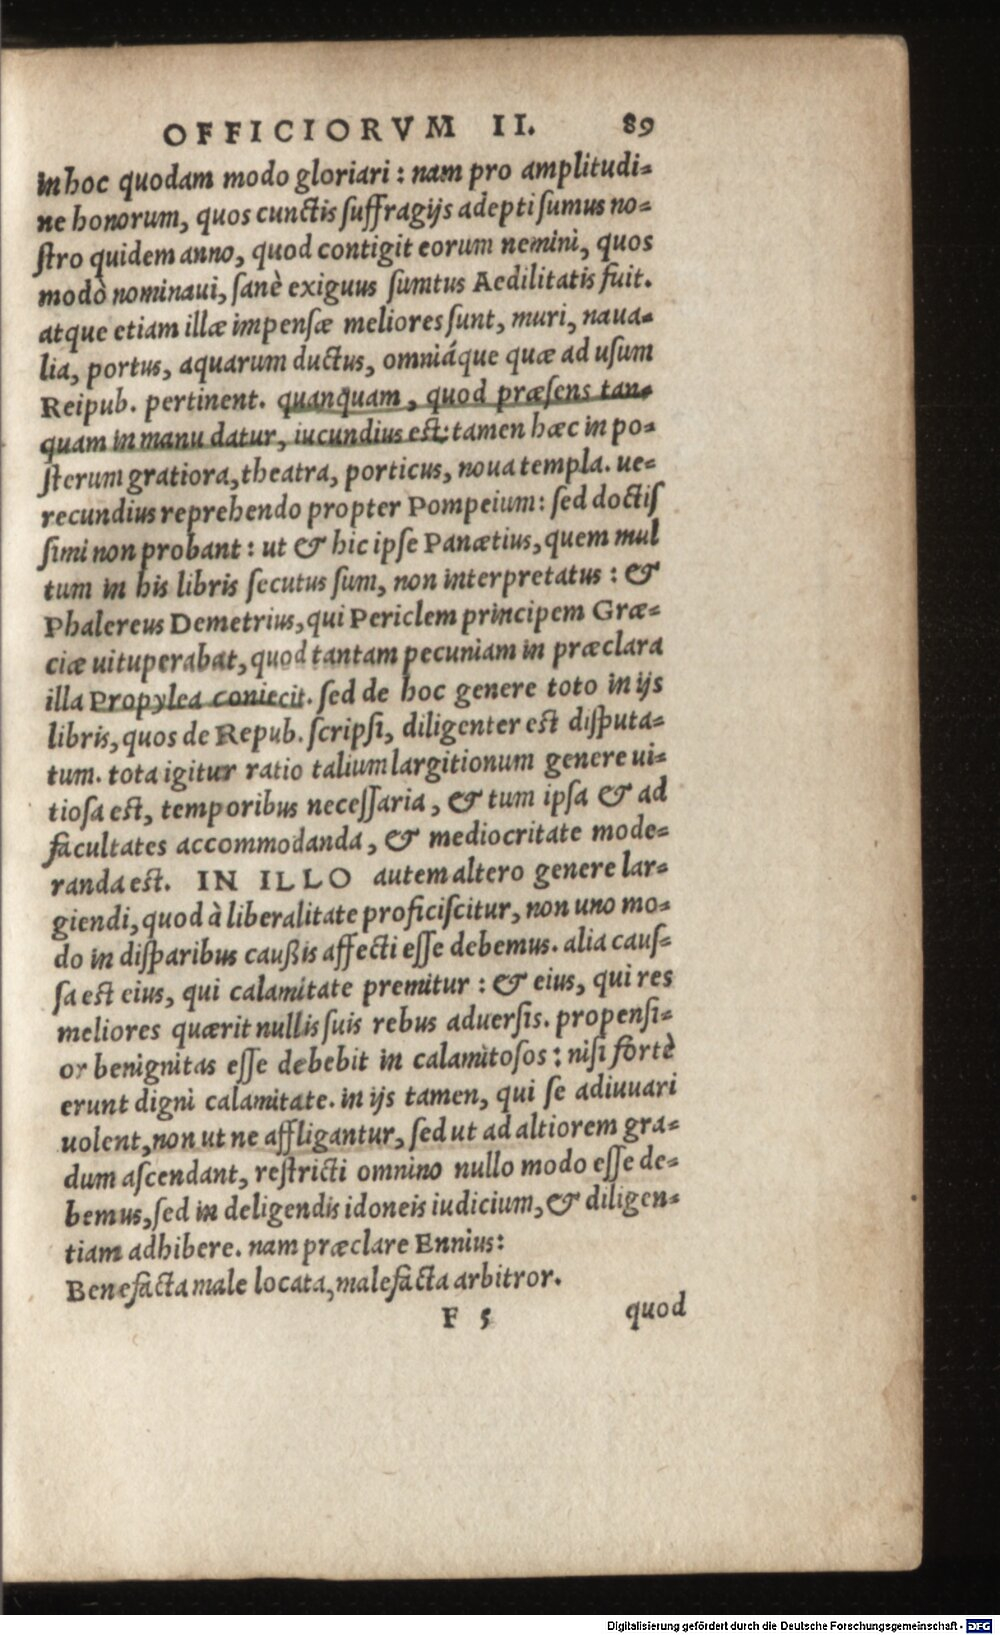 OFFICIORVM II. 89
in hoc quodam modo gloriari : nam pro amplitudi-
ne honorum, quos cunctis ſuffragijs adepti ſumus no-
ſtro quidem anno, quod contigit eorum nemini, quos
modò nominaui, ſanè exiguus ſumtus Aedilitatis fuit.
atque etiam illæ impenſæ meliores ſunt, muri, naua-
lia, portus, aquarum ductus, omniáque quæ ad uſum
Reipub. pertinent. quanquam, quod præſens tan-
quam in manu datur, iucundius est: tamen hæc in po-
ſterum gratiora, theatra, porticus, noua templa. ue-
recundius reprehendo propter Pompeium: ſed doctiſ
ſimi non probant : ut & hic ipſe Panætius, quem mul
tum in his libris ſecutus ſum, non interpretatus : &
Phalereus Demetrius, qui Periclem principem Græ-
ciæ uituperabat, quod tantam pecuniam in præclara
illa Propylea coniecit. ſed de hoc genere toto in ijs
libris, quos de Repub. ſcripſi, diligenter est diſputa-
tum. tota igitur ratio talium largitionum genere ui-
tioſa est, temporibus neceſſaria, & tum ipſa & ad
facultates accommodanda, & mediocritate mode-
randa est. IN ILLO autem altero genere lar-
giendi, quod à liberalitate proficiſcitur, non uno mo-
do in diſparibus caußis affecti eſſe debemus. alia cauſ-
ſa est eius, qui calamitate premitur : & eius, qui res
meliores quærit nullis ſuis rebus aduerſis. propenſi-
or benignitas eſſe debebit in calamitoſos : niſi fortè
erunt digni calamitate. in ijs tamen, qui ſe adiuuari
uolent, non ut ne affligantur, ſed ut ad altiorem gra-
dum aſcendant, reſtricti omnino nullo modo eſſe de-
bemus, ſed in deligendis idoneis iudicium, & diligen-
tiam adhibere. nam præclare Ennius:
Benefacta male locata, malefacta arbitror.
F 5 quod
Digitalisierung gefördert durch die Deutsche Forschungsgemeinschaft - DFG